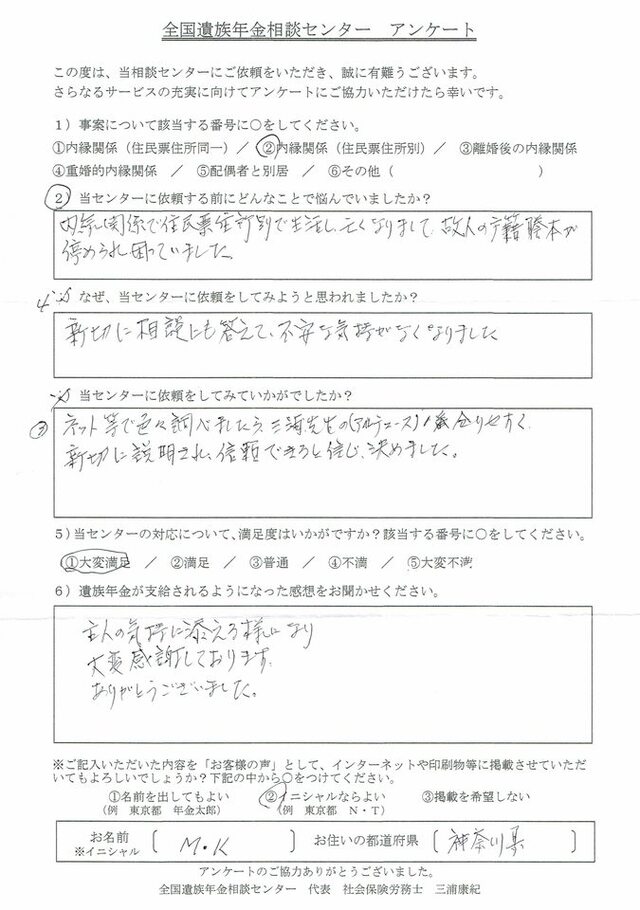 全国遺族年金相談センター　アンケート
この度は、当相談センターにご依頼をいただき、誠に有難うございます。
さらなるサービスの充実に向けてアンケートにご協力いただけたら幸いです。
１）事案について該当する番号に○をしてください。
①内縁関係（住民票住所同一）／　②内縁関係（住民票住所別）／　③離婚後の内縁関係
④重婚的内縁関係　／　⑤配偶者と別居　／　⑥その他（　　　　　　　　　　）
２）当センターに依頼する前にどんなことで悩んでいましたか？
内縁関係で住民票住所別で生活し、亡くなりまして、故人の戸籍謄本が
停められ困っていました。
4 なぜ、当センターに依頼をしてみようと思われましたか？
新切に相談にも答えて、不安な気持がなくなりました
③ 当センターに依頼をしてみていかがでしたか？
ネット等で色々調べましたら、三浦先生の
新切に説明され、信頼できると信じ、決めました。
５）当センターの対応について、満足度はいかがですか？該当する番号に○をしてください。
①大変満足　／　②満足　／　③普通　／　④不満　／　⑤大変不満
６）遺族年金が支給されるようになった感想をお聞かせください。
主人の気持に添える様になり
大変感謝しております。
ありがとうございました。
※ご記入いただいた内容を「お客様の声」として、インターネットや印刷物等に掲載させていただ
いてもよろしいでしょうか？下記の中から○をつけてください。
①名前を出してもよい　　②イニシャルならよい　　③掲載を希望しない
（例　東京都　年金太郎）　　（例　東京都　Ｎ・Ｔ）
お名前　〔　M・K　〕　お住いの都道府県　〔　神奈川県　〕
※イニシャル
アンケートのご協力ありがとうございました。
全国遺族年金相談センター　代表　社会保険労務士　三浦康紀